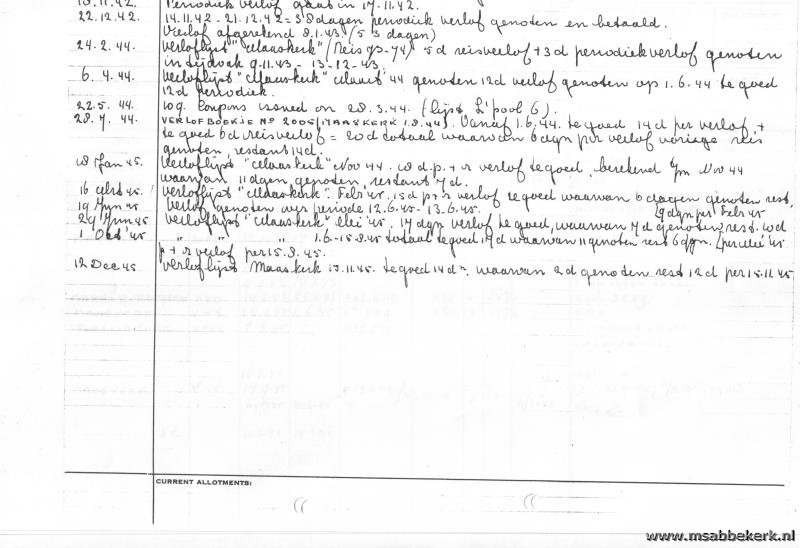 10.11.42. Periodiek verlof gaat in 17.11.42.
22.12.42. 14.11.42 - 21.12.42 = 38 dagen periodiek verlof genoten en betaald.
Verlof afgerekend 8.1.43 (5 3 dagen)
24.2.44. Verloflijst "Maaskerk" (Reis 73-74) 5d reisverlof + 3d periodiek verlof genoten
in tijdvak 9.11.43 - 13-12-43.
6.4.44. Verloflijst "Maaskerk" Maart '44 genoten 12d verlof genoten op 1.6.44 te goed
12d periodiek.
22.5.44. 10 g. Coupons issued on 28.3.44 (lijst L'pool 6).
28.7.44. VERLOFBOEKJE No 2005 (MAASKERK 1.8.44). Vanaf 1.6.44 te goed 14d per verlof +
te goed 6d reisverlof = 20d totaal waarvan 6 dgn per verlof vorige reis
genoten, restant 14d.
18 Jan 45. Verloflijst "Maaskerk" Nov 44. 18 d.p. + r verlof te goed, berekend t/m Nov 44
waarvan 11 dagen genoten, restant 7d.
16 Apl 45. Verloflijst "Maaskerk" Febr 45. 15d p + r verlof te goed waarvan 6 dagen genoten rest.
9 dgn per Febr 45
19 Jun 45 Verlof genoten over periode 12.6.45 - 13.6.45.
29 Jun 45 Verloflijst "Maaskerk" Mei '45. 17 dgn verlof te goed, waarvan 7d genoten, rest. 10d
per Mei 45
1 Oct '45 " " " 1.6 - 15.8.45 totaal te goed 17d waarvan 11 genoten rest 6 dgn.
p + r verlof per 15.8.45.
12 Dec 45 Verloflijst Maaskerk 15.11.45. te goed 14 dn. waarvan 2d genoten rest 12d per 15.11.45
CURRENT ALLOTMENTS:
www.msabbekerk.nl